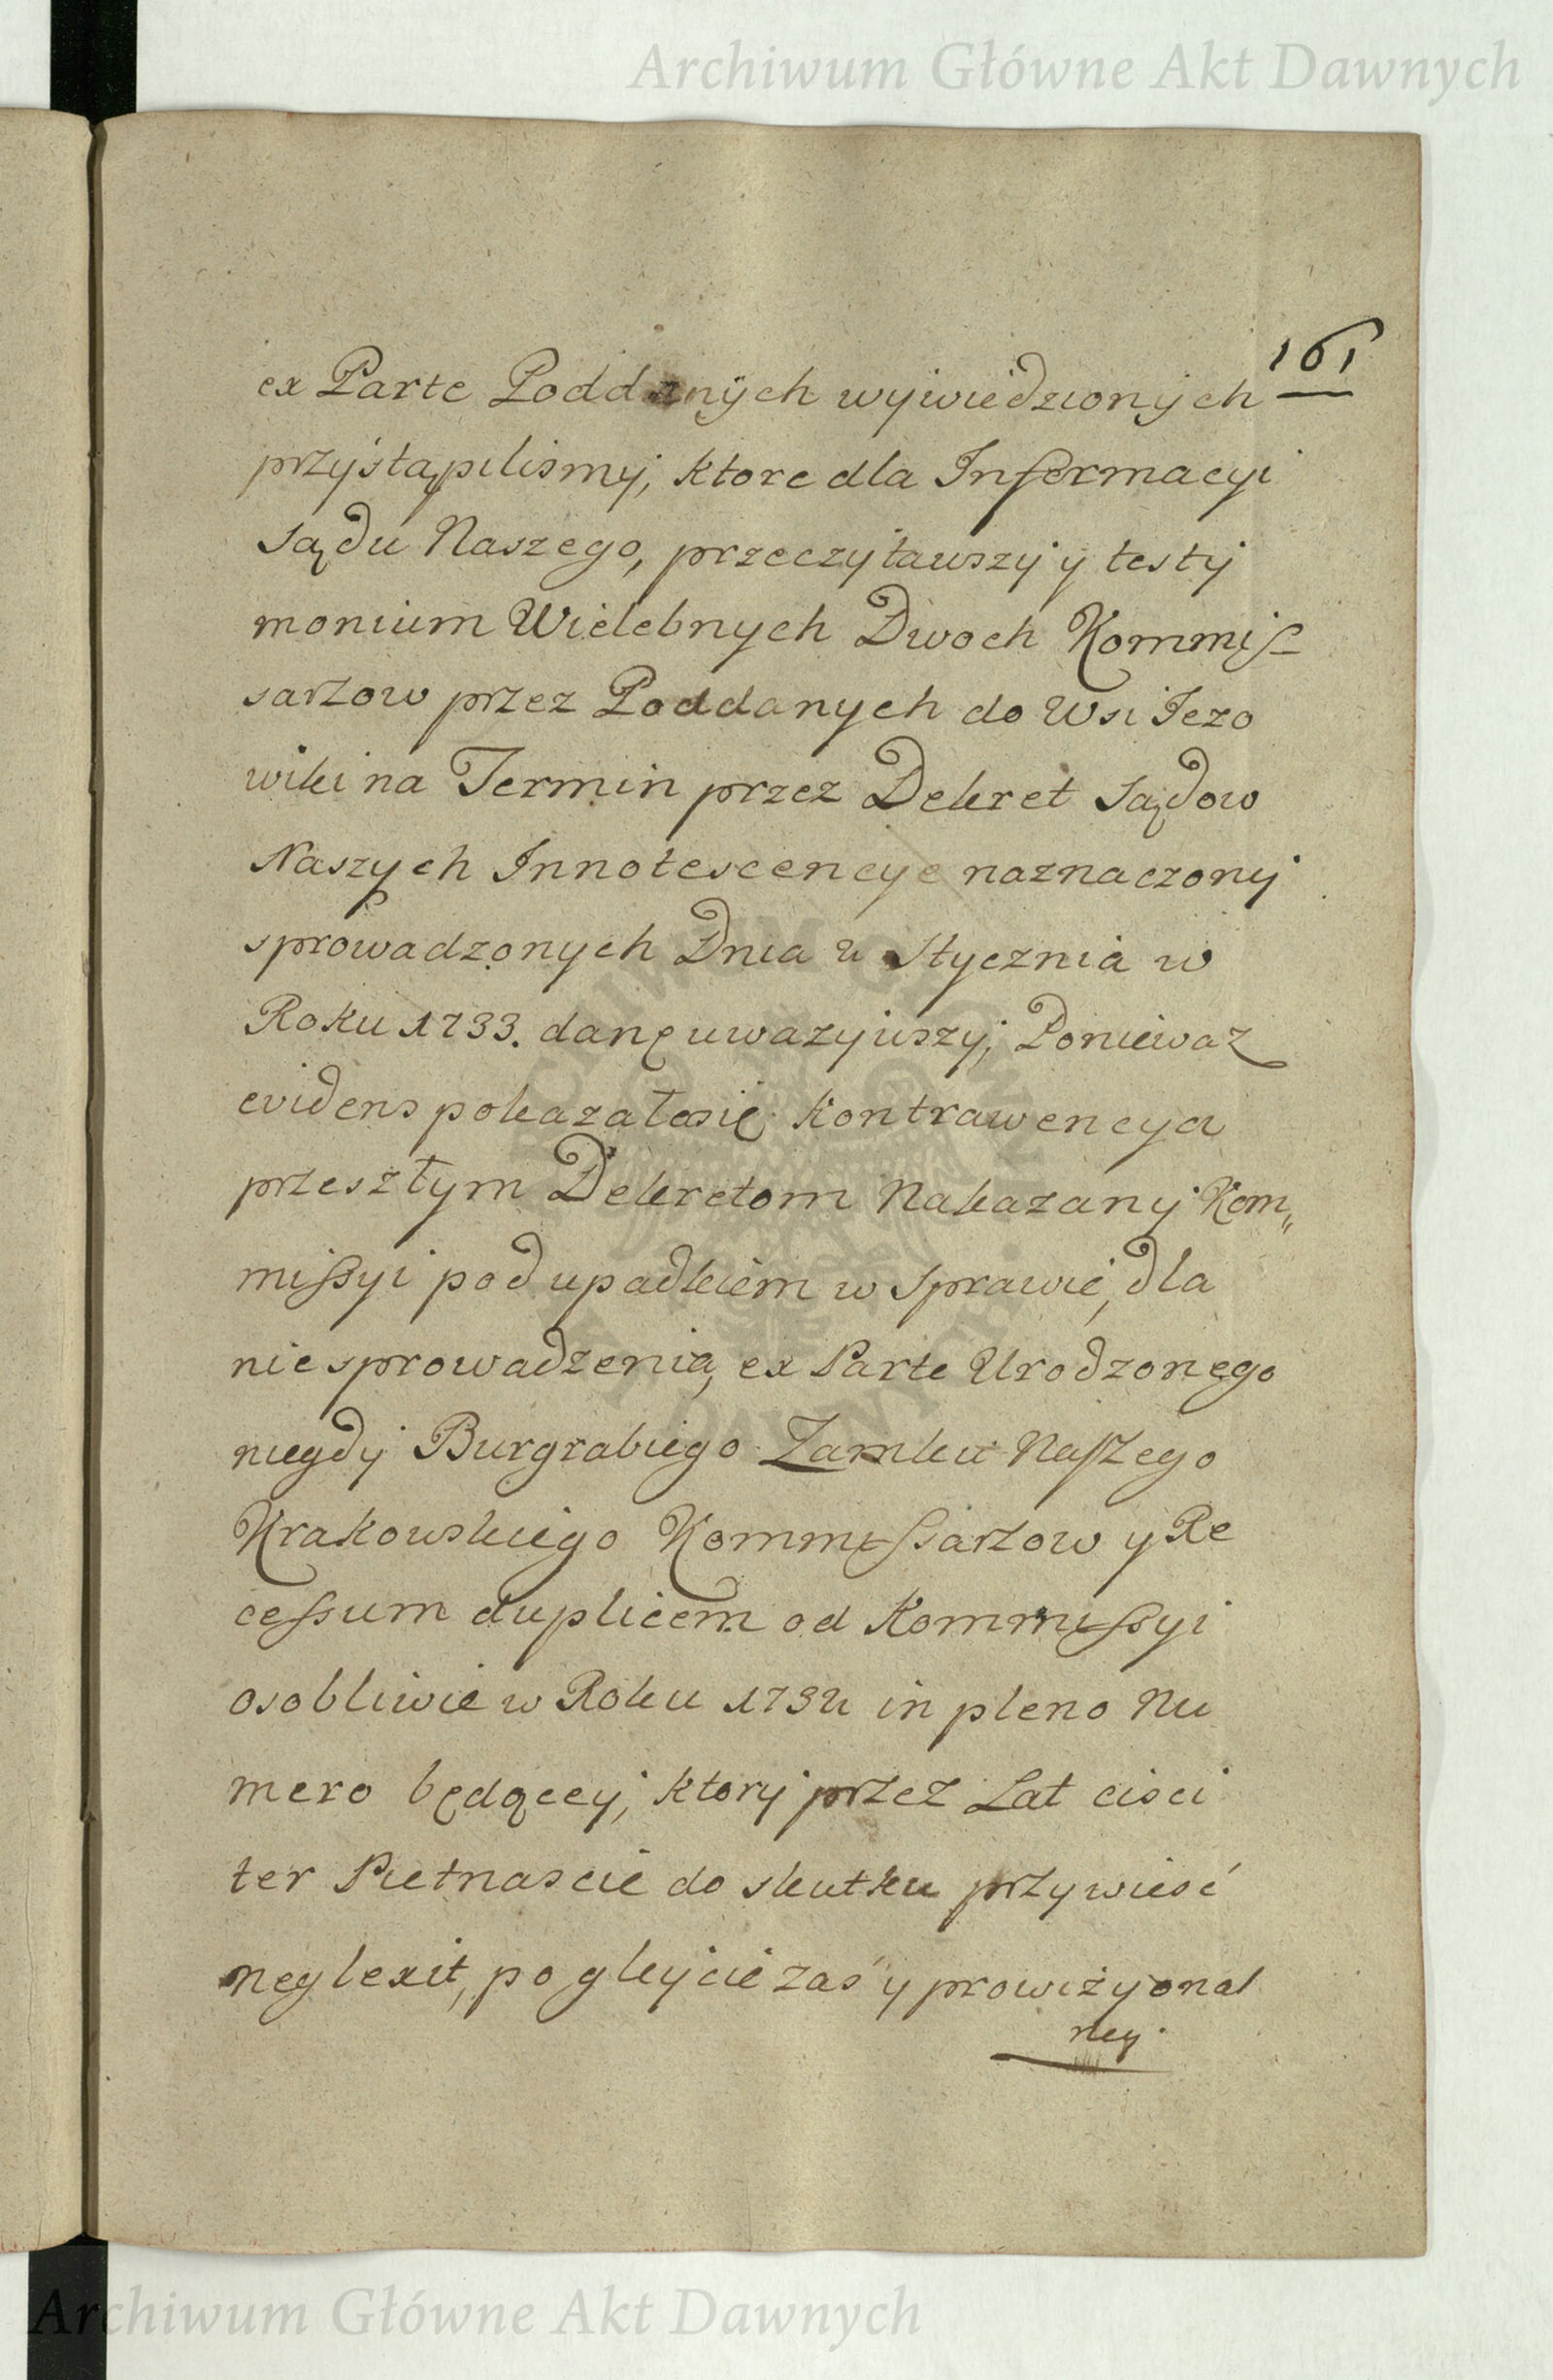 Archiwum Główne Akt Dawnych
161
ex Parte Poddanych wywiedzionych
przystąpilismy, ktore dla Informacyi
Sądu Naszego, przeczytawszy y testy
monium Wielebnych Dwoch Kommis-
sarzow przez Poddanych do Wsi Jezo
wiki na Termin przez Dekret Sądow
Naszych Innotescencye naznaczony
sprowadzonych Dnia 2 Stycznia w
Roku 1733. danę uwazywszy, Poniewaz
evidens pokazałasię kontrawencya
przeszłym Dekretom Nakazany Kom„
missyi pod upadkiem w sprawie, dla
nie sprowadzenia, ex Parte Urodzonego
niegdy Burgrabiego Zamku Naszego
Krakowskiego Kommissarzow y Re
cessum duplicem od Kommissyi
osobliwie w Roku 1732 in pleno Nu
mero będącey, ktory przez Lat cisci
ter Pietnascie do skutku przywiesć
neglexit, po gleycie zaś y prowizyonal
ney.
Archiwum Główne Akt Dawnych